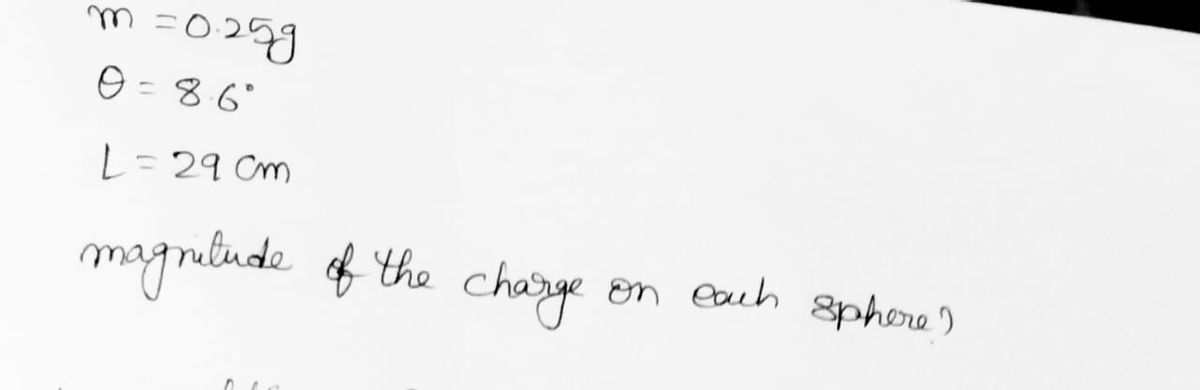 m = 0.25g
θ = 8.6°
L = 29 cm
magnitude of the charge on each sphere?